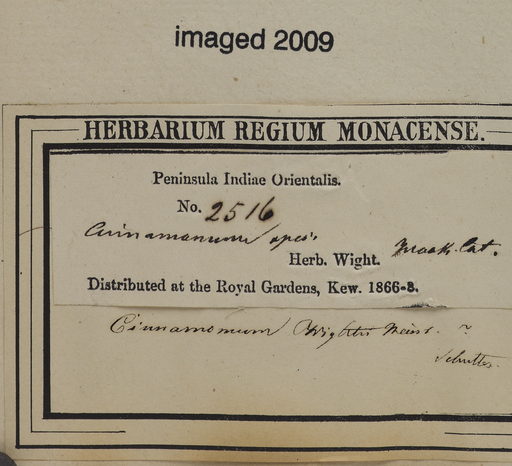 imaged 2009
HERBARIUM REGIUM MONACENSE.
Peninsula Indiae Orientalis.
No. 2516
Cinnamomum
Herb. Wight.
Distributed at the Royal Gardens, Kew. 1866-8.
Cinnamomum Wightii Meisn.